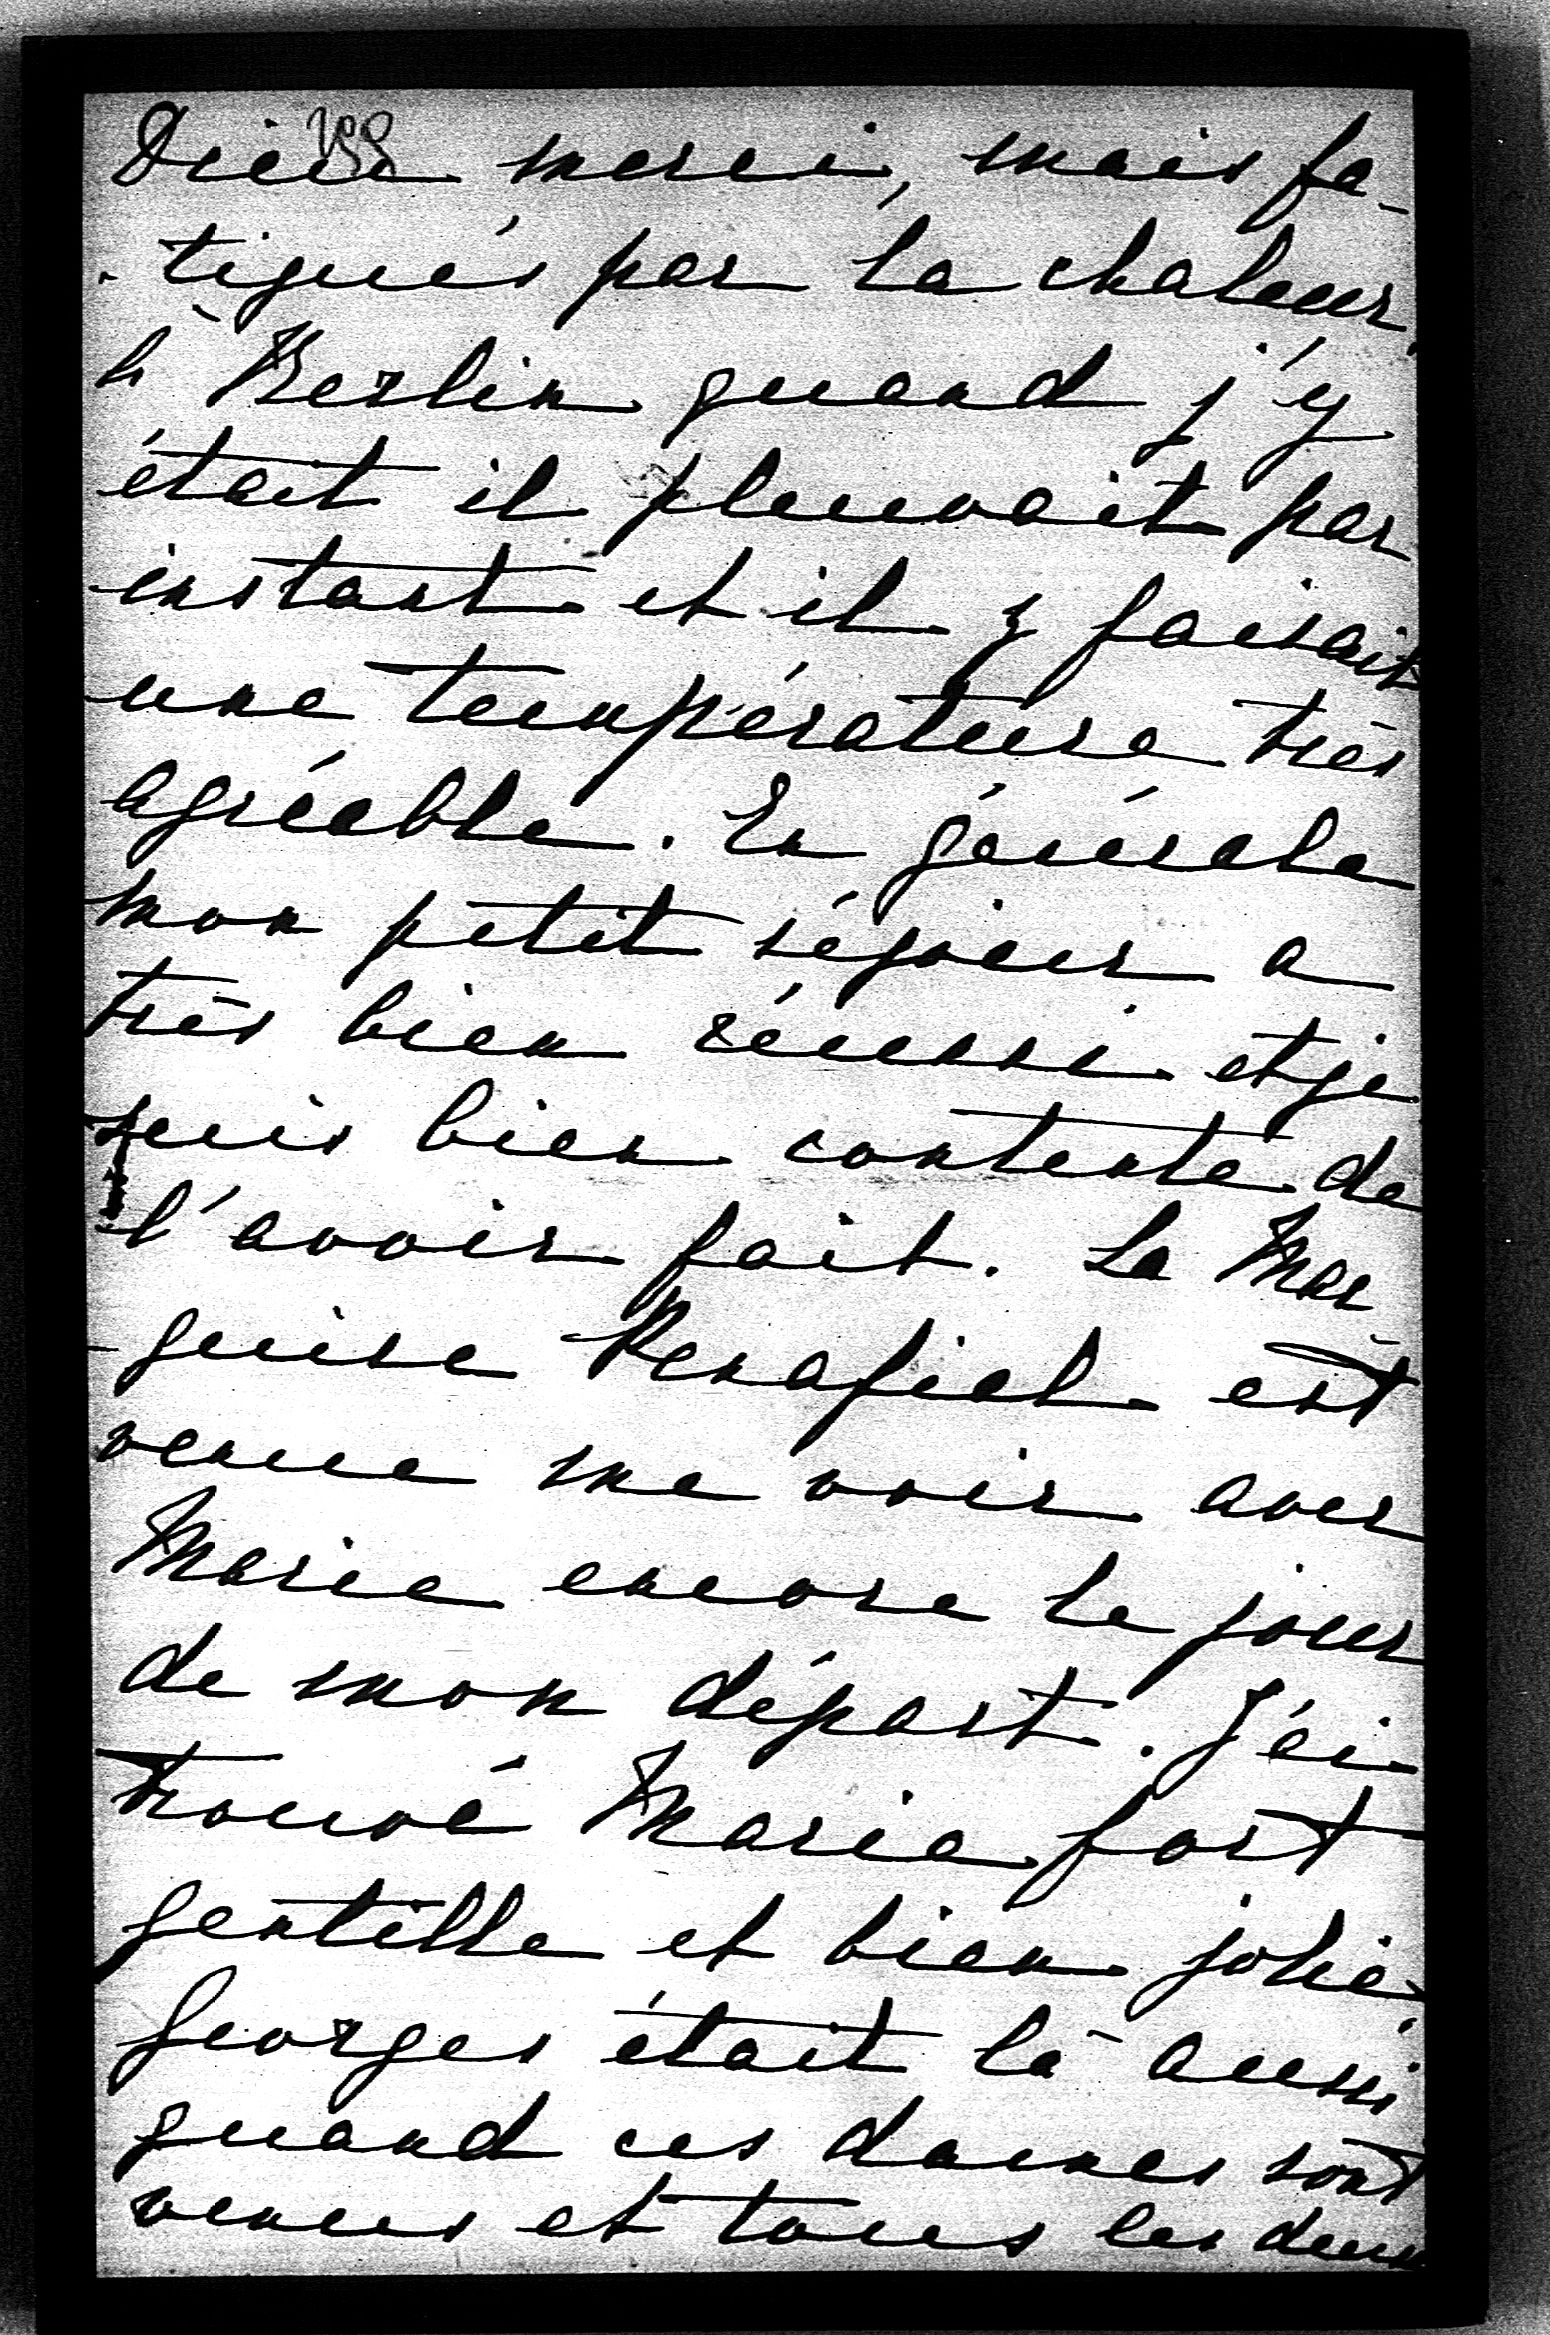 Dieu merci, mais fa-
-tigués par la chaleur.
à Berlin quand j'y
était il pleuvait par
instant et il y faisait
une température très
agréable. En générale
mon petit séjour a
très bien réussi et je
suis bien contente de
l'avoir fait. La Mar-
-quise Penafiel est
venue me voir avec
Marie encore le jour
de mon départ. J'ai
trouvé Marie fort
gentille et bien jolie.
Georges était là aussi
quand ces dames sont
venues et tous les deux